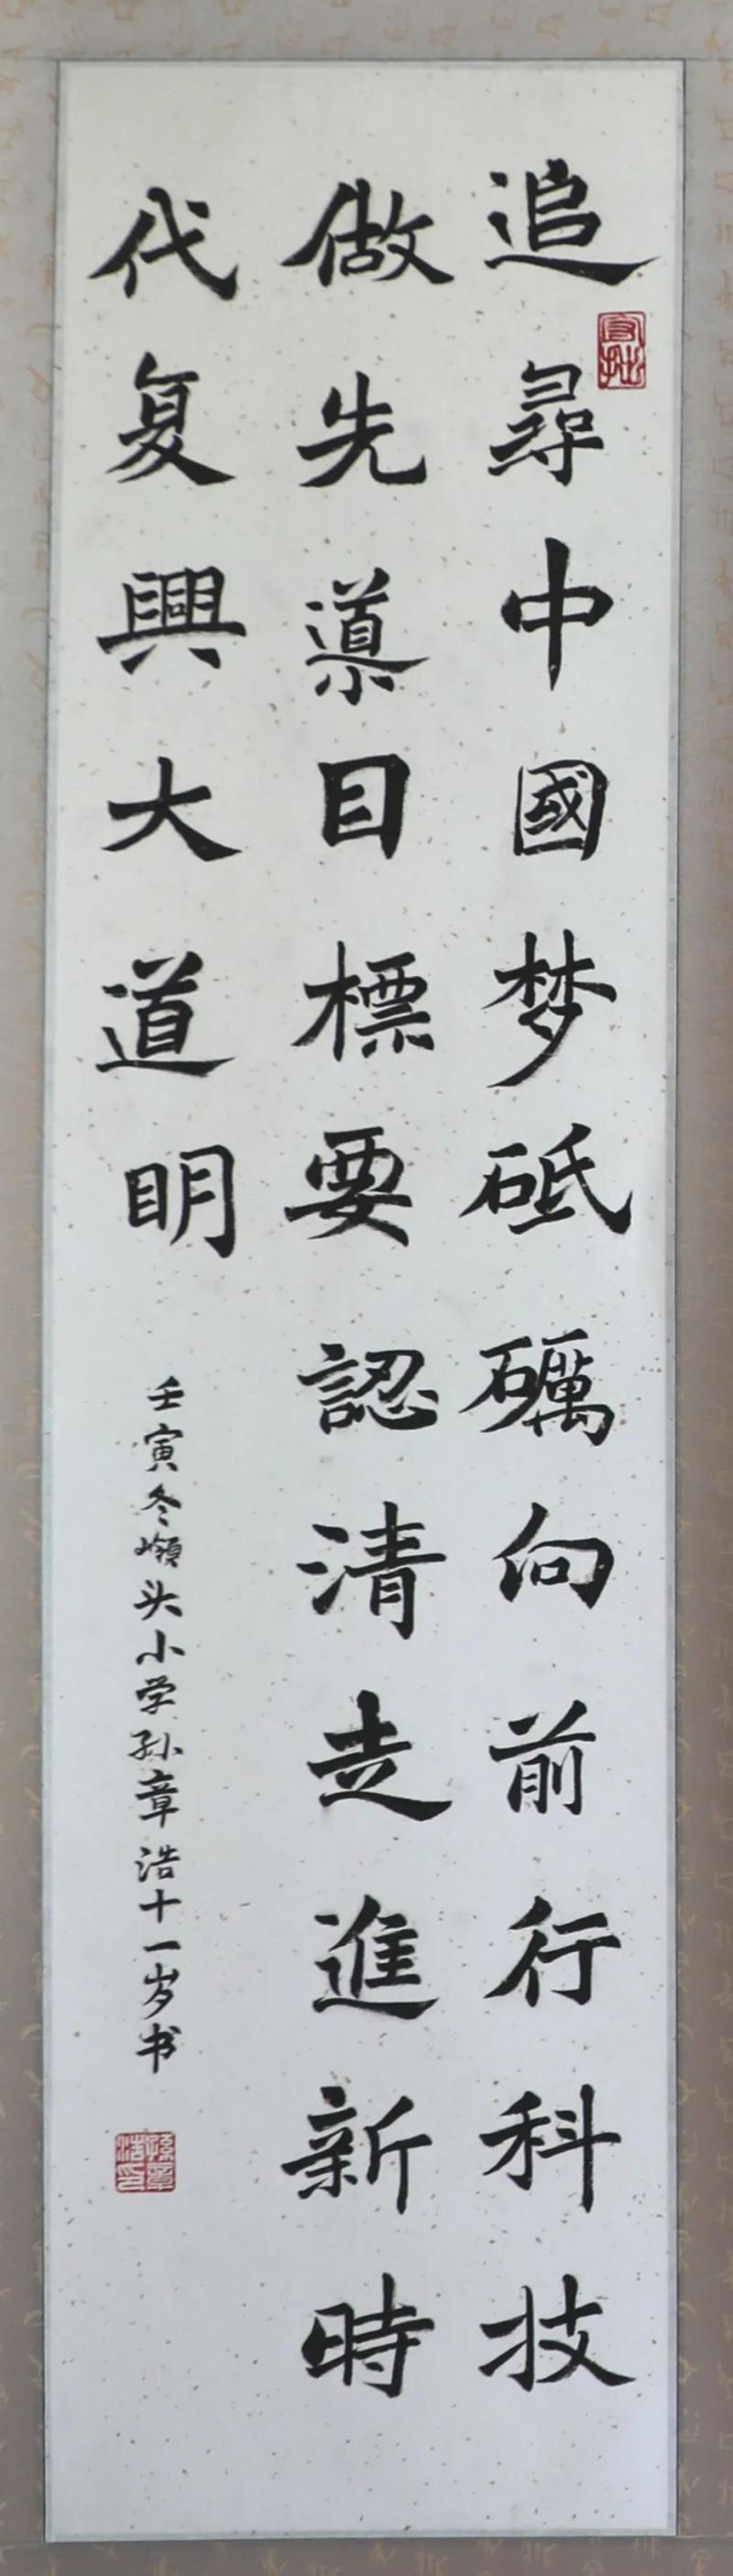 追尋中國梦砥礪向前行科技
做先導目標要認清走進新時
代复興大道明
壬寅冬嶺头小学孙章浩十一岁书
守拙
孫章浩印